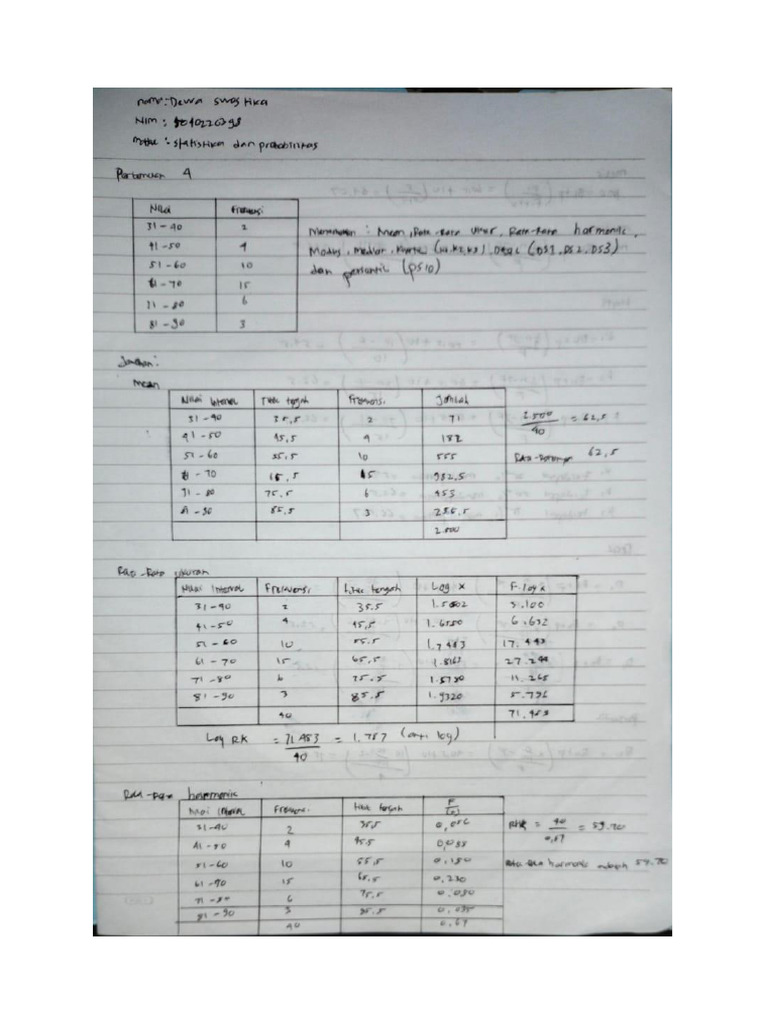 nama : Dewa Swastika
NIM :
Matkul : statistika dan probabilitas
Pertemuan 4
Nilai Frekuensi
31 - 40 2
41 - 50 4
51 - 60 10
61 - 70 15
71 - 80 6
81 - 90 3
Menentukan : Mean, Rata-Rata Ukur, Rata-Rata harmonic,
Modus, Median, Kuartil (K1, K2, K3), Desil (DS1, DS2, DS3)
dan persentil (PS10)
Jawaban :
Mean
Nilai Interval Titik tengah Frekuensi Jumlah
31 - 40 35,5 2 71
41 - 50 45,5 4 182
51 - 60 55,5 10 555
61 - 70 65,5 15 982,5
71 - 80 75,5 6 453
81 - 90 85,5 3 256,5
2.500
2.500 / 40 = 62,5
Rata-Ratanya 62,5
Rata-Rata ukuran
Nilai Interval Frekuensi titik tengah Log x F.log x
31 - 40 2 35.5 1.5502 3.100
41 - 50 4 45,5 1.6580 6.632
51 - 60 10 55.5 1.7443 17.443
61 - 70 15 65,5 1.8162 27.244
71 - 80 6 75.5 1.8780 11.268
81 - 90 3 85.5 1.9320 5.796
40 71.483
Log RK = 71.483 / 40 = 1.787 (anti log)
Rata-Rata harmonic
Nilai Interval Frekuensi titik tengah F
31-40 2 35.5 0,056
41-50 4 45.5 0,088
51-60 10 55,5 0,180
61-70 15 65,5 0,230
71-80 6 75,5 0.080
81-90 3 85.5 0,035
40 0,67
RHK = 40 / 0,67 = 59.70
Rata-Rata harmonic adalah 59.70